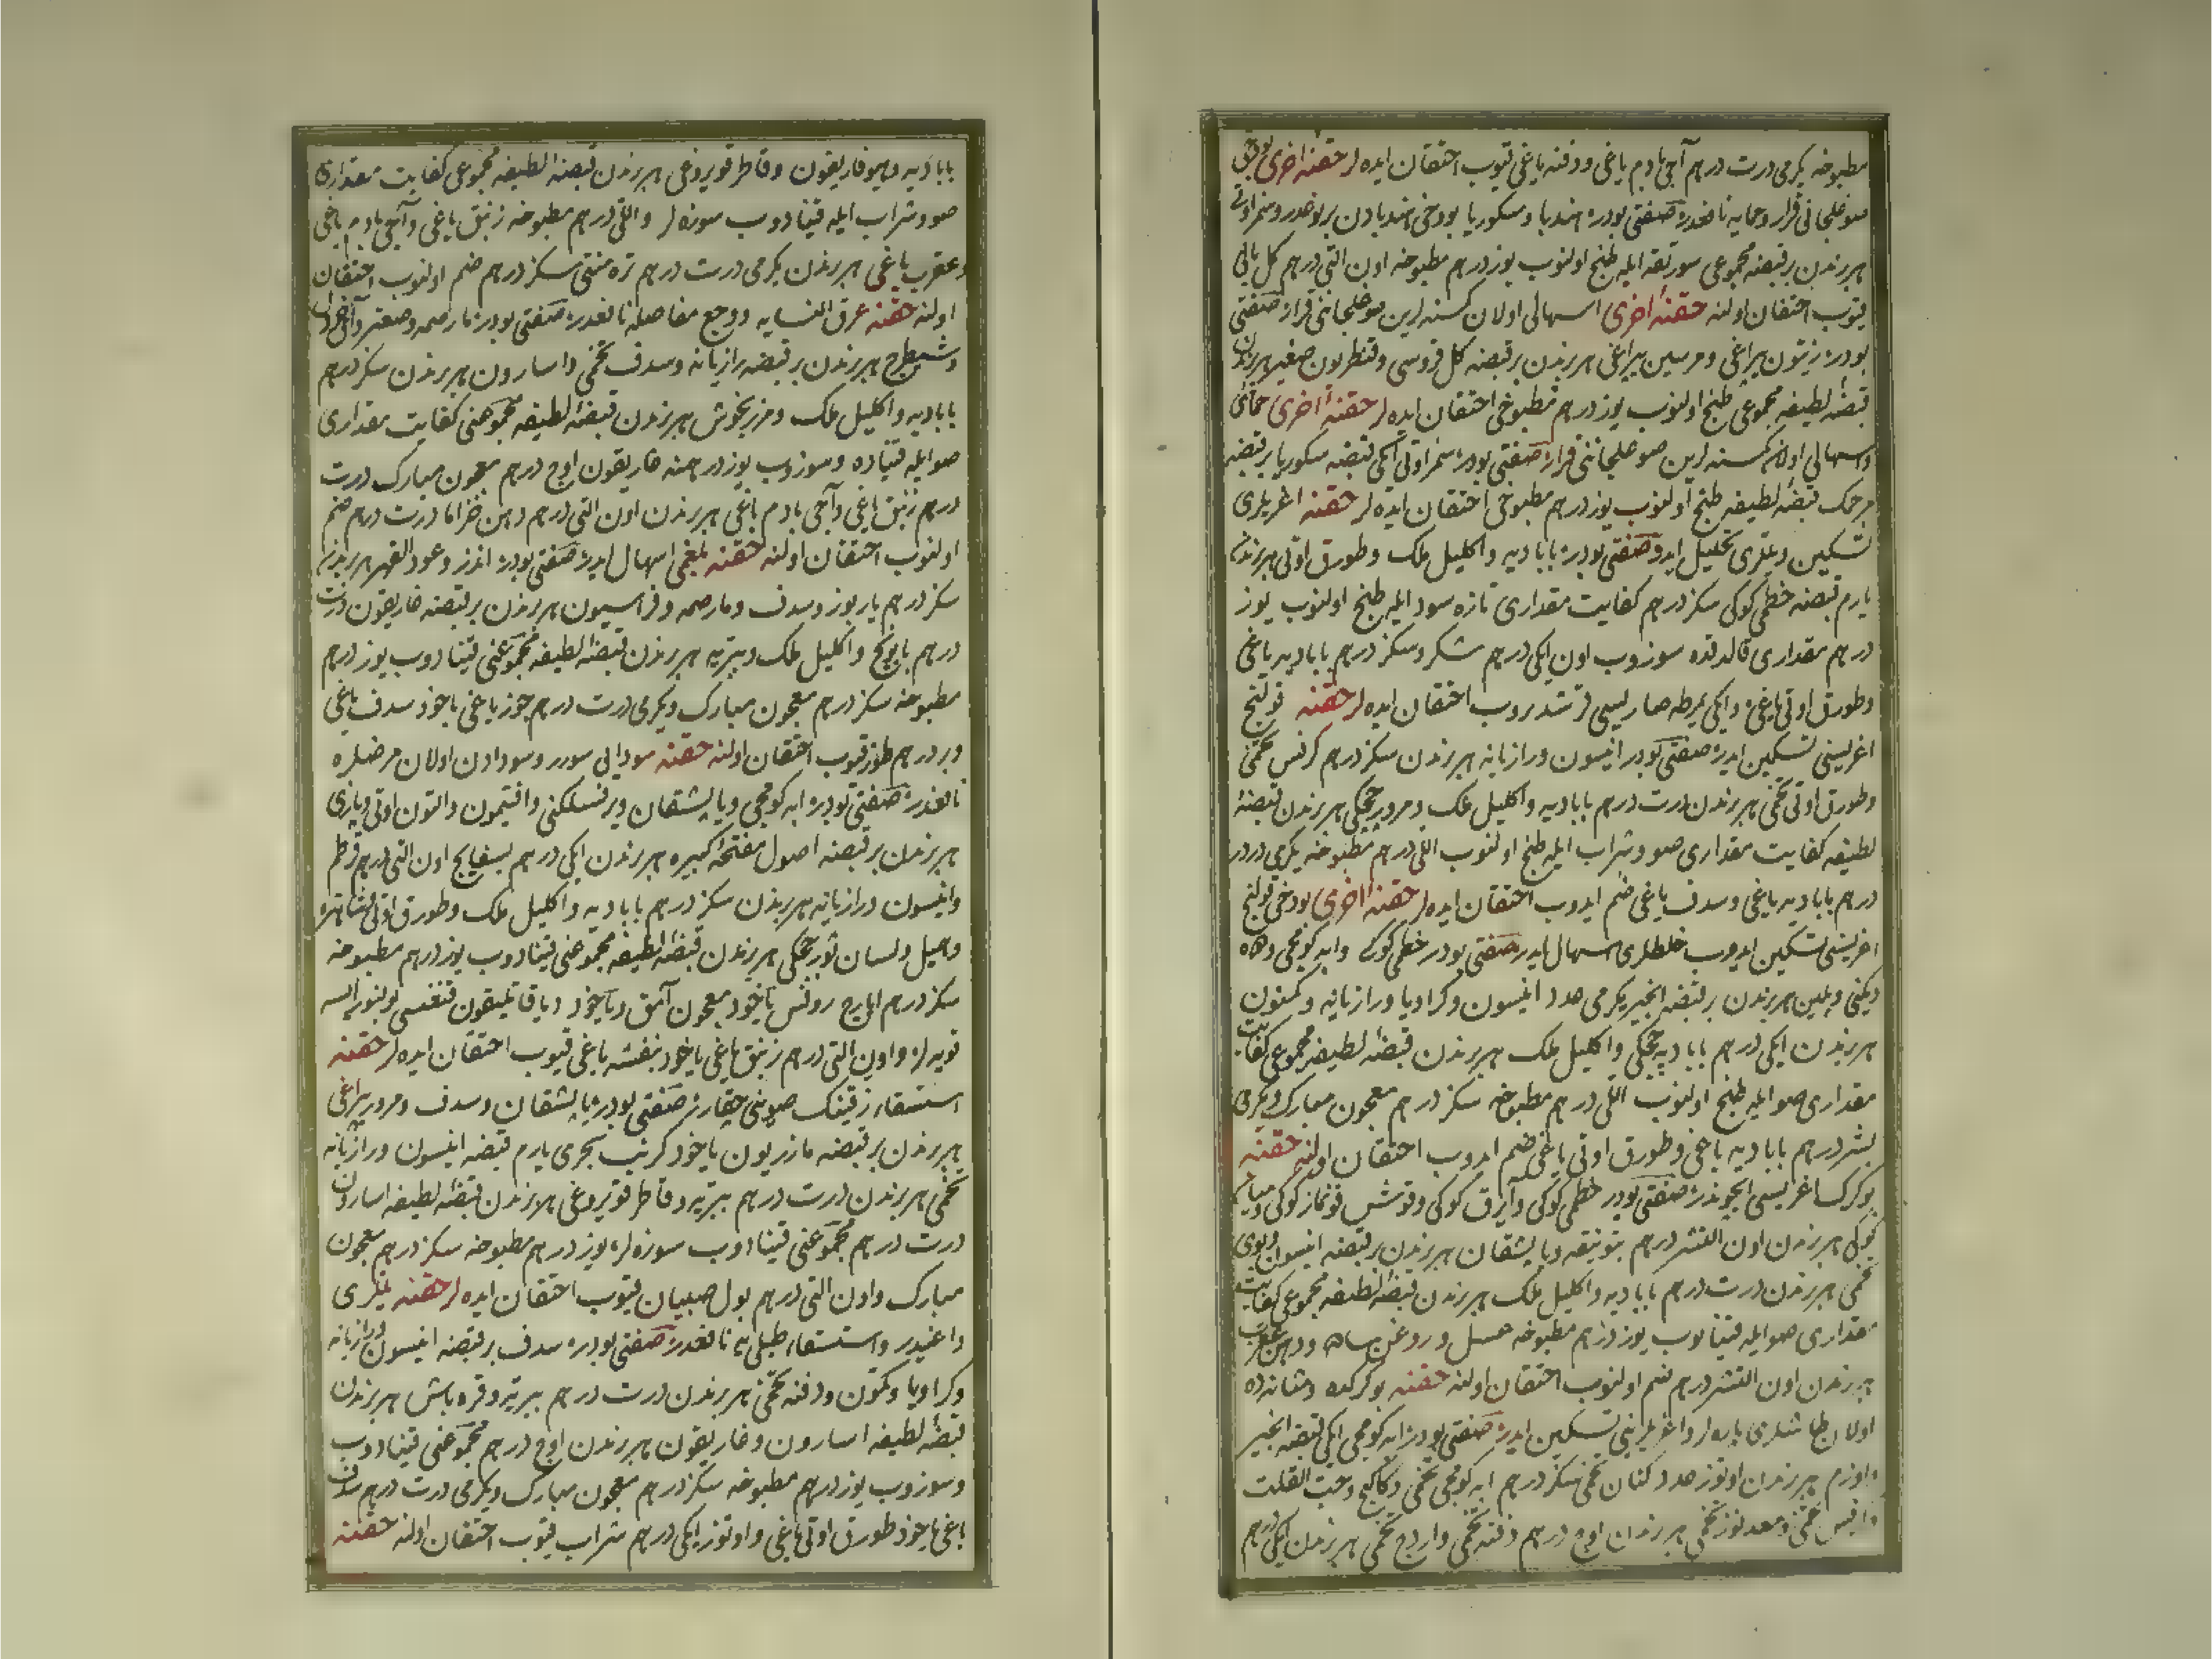 مطبوخه یکرمی درت درهم آجی بادم یاغی ودفنه یاغی قیوب احتقان ایده لر حقنهٔ اخری بودخی
صوغلجانی قرار وحمایه نافعدر صفتی بودر هندبا وسکوریا بودخی هندبادن بر نوعدر وسنمر اوتی
هر برندن بر قبضه مجموعی سورتقه ایله طبخ اولنوب یوز درهم مطبوخه اون التی درهم کل بالی
قیوب احتقان اولنه حقنهٔ اخری اسهالی اولان کسنه لرین صوغلجاننی قرار صفتی
بودر زیتون یپراغی ومرسین یپراغی هر برندن بر قبضه کل قروسی وقنطریون صغیر هر برندن
قبضهٔ لطیفه مجموعی طبخ اولنوب یوز درهم مطبوخی احتقان ایده لر حقنهٔ اخری حمائی
واسهالی اولان کسنه لرین صوغلجاننی قرار صفتی بودر سنمر اوتی ایکی قبضه سکوریا بر قبضه
مرجمک قبضهٔ لطیفه طبخ اولنوب یوز درهم مطبوخی احتقان ایده لر حقنه اغریلری
تسکین ویللری تحلیل ایدر صفتی بودر بابادیه واکلیل ملک وطورق اوتی هر برندن
یارم قبضه خطمی کوکی سکز درهم کفایت مقداری تازه سود ایله طبخ اولنوب یوز
درهم مقداری قالدقده سوزوب اون ایکی درهم شکر وسکز درهم بابادیه یاغی
وطورق اوتی یاغی وایکی یمرطه صاریسی قرشدیروب احتقان ایده لر حقنه قولنج
اغریسنی تسکین ایدر صفتی بودر انیسون ورازیانه هر برندن سکز درهم کرفس تخمی
وطورق اوتی تخمی هر برندن درت درهم بابادیه واکلیل ملک ومرور چچکی هر برندن قبضهٔ
لطیفه کفایت مقداری صو وشراب ایله طبخ اولنوب اللی درهم مطبوخه یکرمی درر
درهم بابادیه یاغی وسدف یاغی ضم ایدوب احتقان ایده لر حقنهٔ اخری بودخی قولنج
اغریسنی تسکین ایدوب خلطلری اسهال ایدر صفتی بودر خطمی کوکی وابه کومجی
دیکنی هر برندن بر قبضه انجیر یکرمی عدد انیسون وکراویا ورازیانه وکمون
هر برندن ایکی درهم بابادیه چچکی واکلیل ملک هر برندن قبضهٔ لطیفه مجموعی کفایت
مقداری صو ایله طبخ اولنوب اللی درهم مطبوخه سکز درهم معجون مبارک ویکرمی
بشر درهم بابادیه یاغی وطورق اوتی یاغی ضم ایدوب احتقان اولنه حقنه
بوکرک اغریسی ایچوندر صفتی بودر خطمی کوکی وآیرق کوکی وقوش قونماز کوکی
کوکی هر برندن اون التیشر درهم ویاپشقان هر برندن بر قبضه انیسون
تخمی هر برندن درت درهم بابادیه واکلیل ملک هر برندن قبضهٔ لطیفه مجموعی کفایت
مقداری صو ایله قینایوب یوز درهم مطبوخه عسل وروغن ساده ودهن عقرب
هر برندن اون التیشر درهم ضم اولنوب احتقان اولنه حقنه بوکرکده ومثانه ده
اولان طاشلری پاره لر واغریلرینی تسکین ایدر صفتی بودر ابه کومجی ایکی قبضه انجیر
واوزم هر برندن اوتوز عدد کتان تخمی سکز درهم ابه کومجی تخمی وکاکنج وحب القلت
تخمی ومعدنوز تخمی هر برندن اوچ درهم دفنه تخمی واردج تخمی هر برندن ایکی درهم
بابادیه وهیوفاریقون وقاطر قویروغی هر برندن قبضهٔ لطیفه مجموعی کفایت مقداری
صو وشراب ایله قینادوب سوزه لر واللی درهم مطبوخه زنبق یاغی وآجی بادم یاغی
وعقرب یاغی هر برندن یکرمی درت درهم تره منتی سکز درهم ضم اولنوب احتقان
اولنه حقنه عرق النسایه ووجع مفاصله نافعدر صفتی بودر مارصمه وصعتر
وشیطرج هر برندن بر قبضه رازیانه وسدف تخمی واسارون هر برندن سکز درهم
بابادیه واکلیل ملک ومرزنجوش هر برندن قبضهٔ لطیفه مجموعنی کفایت مقداری
صو ایله قینادوب وسوزوب یوز درهمنه غاریقون اوچ درهم معجون مبارک درت
درهم زنبق یاغی وآجی بادم یاغی هر برندن اون التی درهم ودهن خزاما درت درهم ضم
اولنوب احتقان اولنه حقنه بلغمی اسهال ایدر صفتی بودر اذخر وعود القهر هر برندن
سکز درهم یاربوز وسدف ومارصمه وفراسیون هر برندن بر قبضه غاریقون درت
درهم بابونج واکلیل ملک وبیریه هر برندن قبضهٔ لطیفه مجموعنی قینادوب یوز درهم
مطبوخه سکز درهم معجون مبارک ویکرمی درت درهم جوز یاغی یاخود سدف یاغی
وبر درهم طوز قیوب احتقان اولنه حقنه سودایی سورر وسودادن اولان مرضلره
نافعدر صفتی بودر ابه کومجی ویاپشقان وافتیمون والتون اوتی
هر برندن بر قبضه اصول مفتحهٔ کبیره هر برندن ایکی درهم بسفایج اون التی درهم قرطم
وانیسون ورازیانه هر برندن سکز درهم بابادیه واکلیل ملک وطورق اوتی وشاهتره
ولسان ثور چچکی هر برندن قبضهٔ لطیفه مجموعنی قینادوب یوز درهم مطبوخه
سکز درهم ایارج روفس یاخود معجون ویاخود دیاقاتلیقون قنغیسی بولنورایسه
قویه لر واون التی درهم زنبق یاغی یاخود بنفشه یاغی قیوب احتقان ایده لر حقنه
استسقاء زقینک صوینی چقارر صفتی بودر یاپشقان وسدف ومرور یپراغی
هر برندن بر قبضه مازریون یاخود کرنب بحری یارم قبضه انیسون ورازیانه
تخمی هر برندن درت درهم بیریه وقاطر قویروغی هر برندن قبضهٔ لطیفه اسارون
درت درهم مجموعنی قینادوب سوزه لر یوز درهم مطبوخه سکز درهم معجون
مبارک واون التی درهم بول صبیان قیوب احتقان ایده لر حقنه یللری
داغیدر واستسقاء طبلی یه نافعدر صفتی بودر سدف بر قبضه انیسون ورازیانه
وکراویا وکمون ودفنه تخمی هر برندن درت درهم بیریه وقره باش هر برندن
قبضهٔ لطیفه اسارون وغاریقون هر برندن اوچ درهم مجموعنی قینادوب
وسوزوب یوز درهم مطبوخه سکز درهم معجون مبارک ویکرمی درت درهم سدف
یاغی یاخود طورق اوتی یاغی واوتوز ایکی درهم شراب قیوب احتقان اولنه حقنه